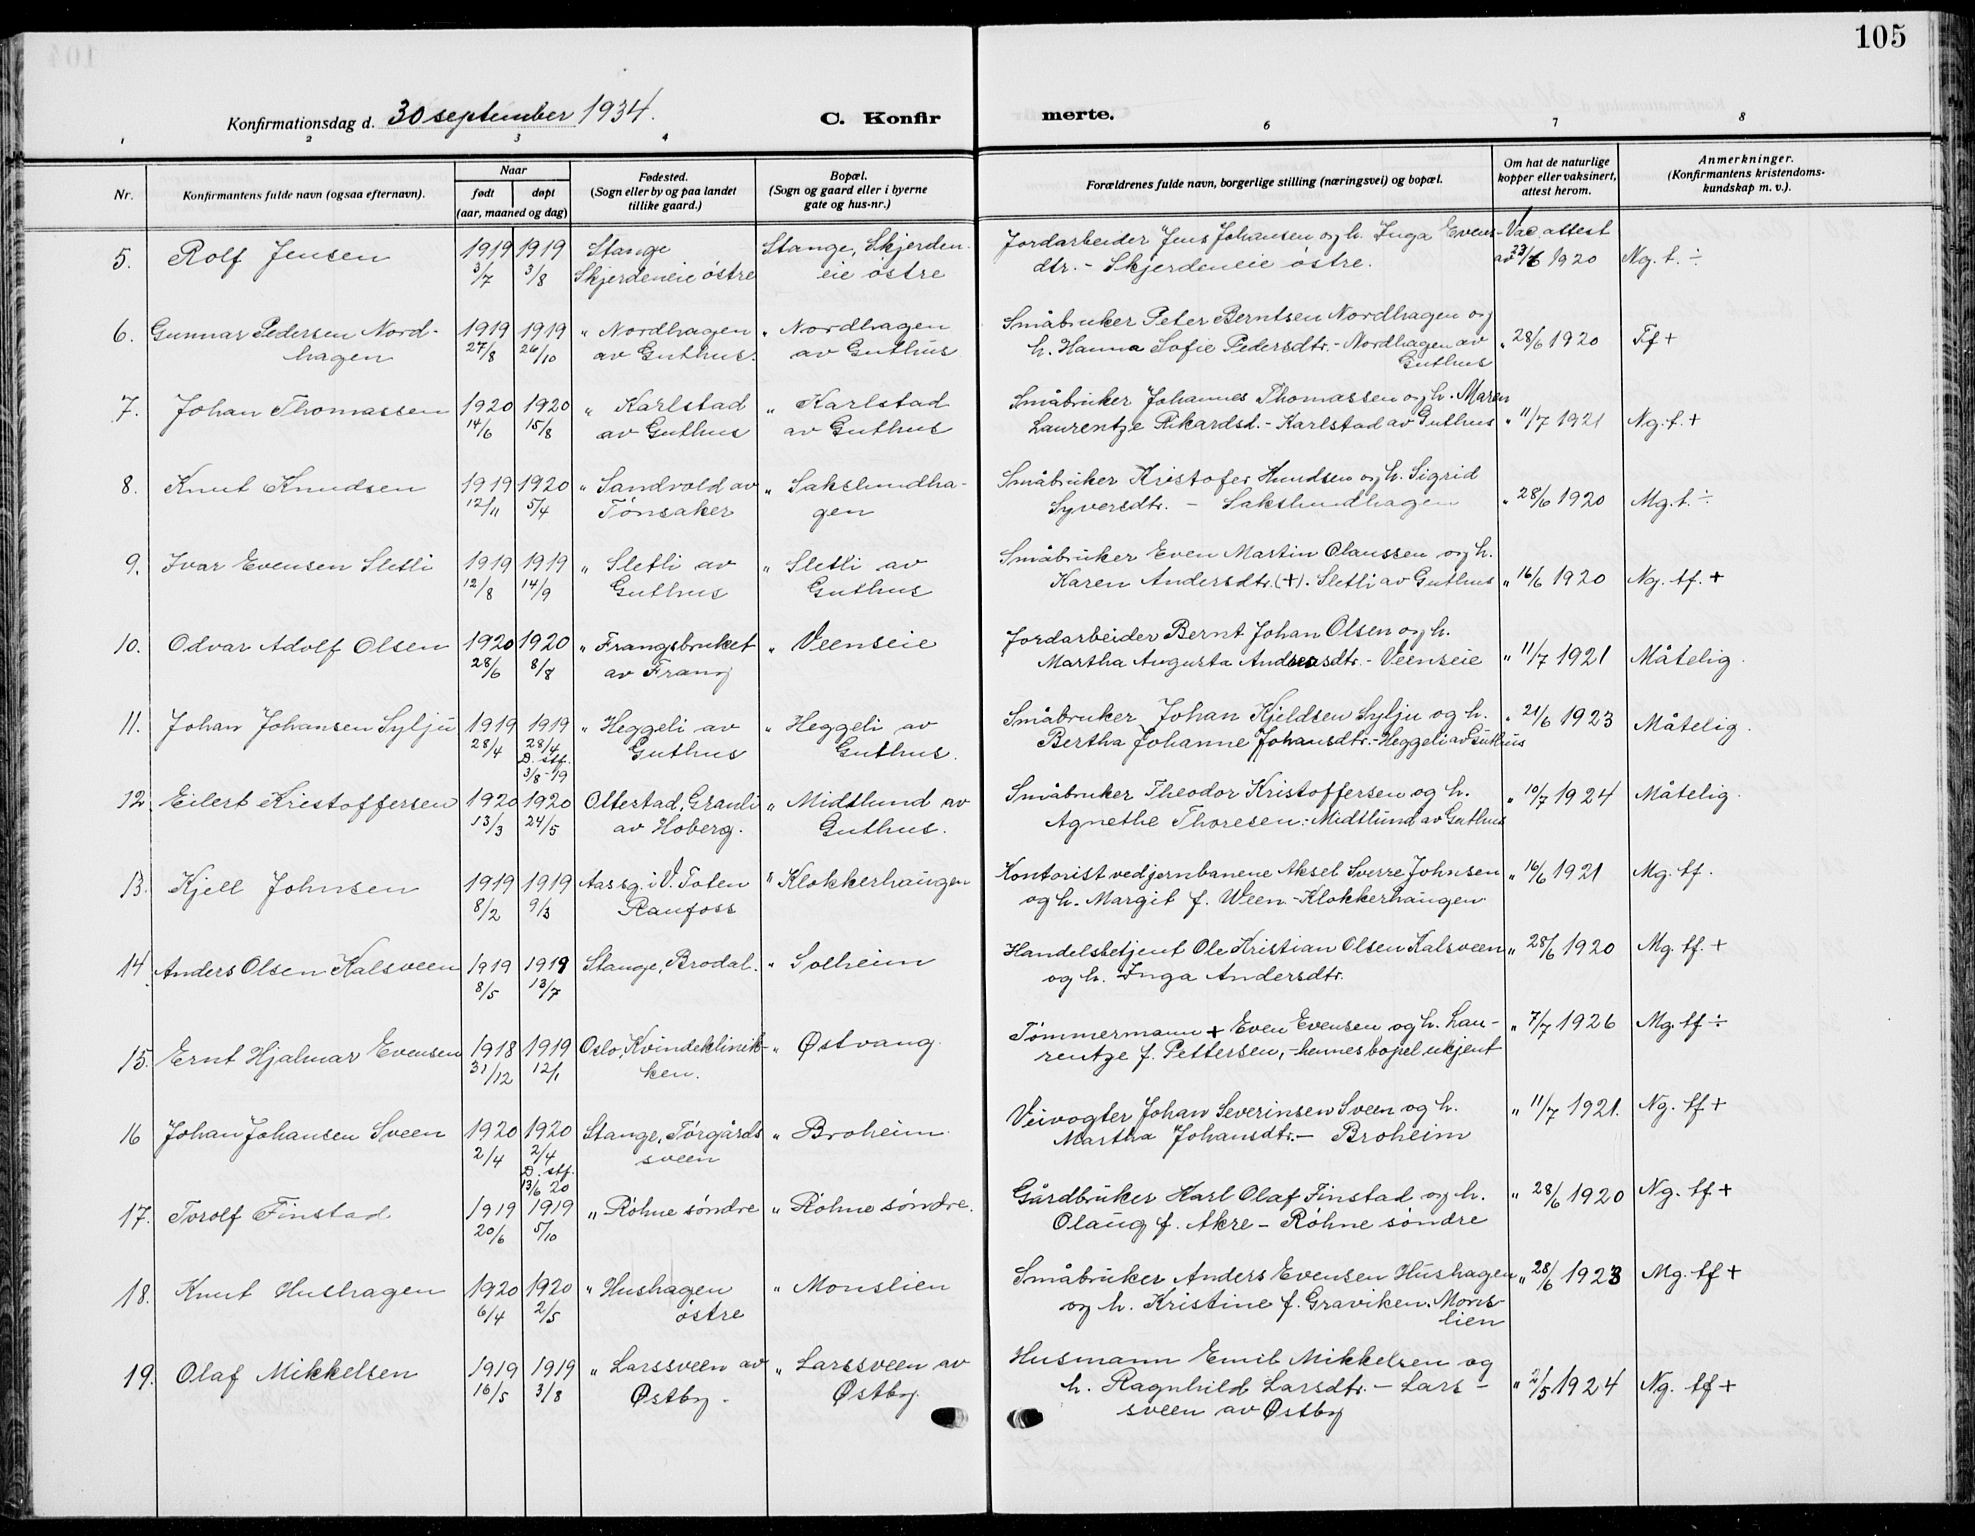 105
Konfirmationsdag d. 30 september 1934.
C. Konfirmerte.
1 2 3 4 6 7 8
Nr.
Konfirmantens fulde navn (ogsaa efternavn).
Naar
født
døpt
(aar, maaned og dag)
Fødested.
(Sogn eller by og paa landet
tillike gaard.)
Bopæl.
(Sogn og gaard eller i byerne
gate og hus-nr.)
Forældrenes fulde navn, borgerlige stilling (næringsvei) og bopæl.
Om hat de naturlige
kopper eller vaksinert,
attest herom.
Anmerkninger.
(Konfirmantens kristendoms-
kundskap m. v.).
5. Rolf Jensen 1919 3/7 1919 3/8 Stange
Skjerdeneie østre
Stange, Skjerden-
eie østre
Jordarbeider Jens Johansen og h. Inga Evens-
dtr. - Skjerdeneie østre.
Vac attest
av 23/6 1920 Ng. t. ÷
6. Gunnar Pedersen Nord-
hagen
1919 27/8 1919 26/10 " Nordhagen
av Guthus.
" Nordhagen
av Guthus
Småbruker Peter Berntsen Nordhagen og
h. Hanna Sofie Pedersdtr. - Nordhagen av
Guthus
" 28/6 1920 Tf +
7. Johan Thomassen 1920 14/6 1920 15/8 " Karlstad
av Guthus
" Karlstad
av Guthus
Småbruker Johannes Thomassen og h. Maren
Laurentze Rikardsd. - Karlstad av Guthus
" 11/7 1921 Ng. t. +
8. Knut Knudsen 1919 12/11 1920 5/4 " Sandvold av
Tønsaker
" Sakslundha-
gen
Småbruker Kristofer Knudsen og h. Sigrid
Syversdtr. - Sakslundhagen
" 28/6 1920 Mg. t. ÷
9. Ivar Evensen Sletli 1919 12/8 1919 14/9 " Sletli av
Guthus
" Sletli av
Guthus
Småbruker Even Martin Olaussen og h.
Karen Andersdtr. (+). Sletli av Guthus
" 16/6 1920 Ng. tf. +
10. Odvar Adolf Olsen 1920 28/6 1920 8/8 " Frangsbruket
av Frang
" Veenseie
Jordarbeider Bernt Johan Olsen og h.
Martha Augusta Andreasdtr. - Veenseie
" 11/7 1921 Måtelig.
11. Johan Johansen Sylju 1919 28/4 1919 28/4
D. stf.
3/8-19
" Heggeli av
Guthus
" Heggeli av
Guthus.
Småbruker Johan Kjeldsen Sylju og h.
Bertha Johanne Johansdtr. - Heggeli av Guthus
" 21/6 1923 Måtelig.
12. Eilert Kristoffersen 1920 13/3 1920 24/5 Ottestad, Granli
av Hoberg.
" Midtlund av
Guthus.
Småbruker Theodor Kristoffersen og h.
Agnethe Thoresen: Midtlund av Guthus
" 10/7 1924 Måtelig.
13. Kjell Johnsen 1919 8/2 1919 9/3 Aas sg. i V. Toten
Raufoss
" Klokkerhaugen
Kontorist ved jernbanene Aksel Sverre Johnsen
og h. Margit f. Ween - Klokkerhaugen
" 16/6 1921 Mg. tf.
14. Anders Olsen Kalsveen 1919 8/5 1919 13/7 Stange, Brodal.
" Solheim
Handelsbetjent Ole Kristian Olsen Kalsveen
og h. Inga Andersdtr.
" 28/6 1920 Mg. tf. +
15. Ernt Hjalmar Evensen 1918 31/12 1919 12/1 Oslo, Kvindeklinik-
ken.
" Østvang.
Tømmermann + Even Evensen og h. Lau-
rentze f. Pettersen, - hennes bopel ukjent
" 7/7 1926 Mg. tf ÷
16 Johan Johansen Sveen 1920 2/4 1920 2/4
D. stf.
13/6 20
Stange, Torgårds
sveen
" Broheim
Veivogter Johan Severinsen Sveen og h.
Martha Johansdtr. - Broheim
" 11/7 1921. Ng. tf +
17. Torolf Finstad 1919 20/6 1919 5/10 " Røhne søndre
" Røhne søndre.
Gårdbruker Karl Olaf Finstad og h.
Olaug f. Akre - Røhne søndre
" 28/6 1920 Ng. tf +
18. Knut Hushagen 1920 6/4 1920 2/5 " Hushagen
østre
" Monslien
Småbruker Anders Evensen Hushagen
og h. Kristine f. Graviken. Mons-
lien
" 28/6 1923 Mg. tf +
19. Olaf Mikkelsen 1919 16/5 1919 3/8 " Larssveen av
Østby.
" Larssveen av
Østby.
Husmann Emil Mikkelsen og
h. Ragnhild Larsdtr. - Lars -
sveen av Østby
" 2/5 1924 Ng. tf +